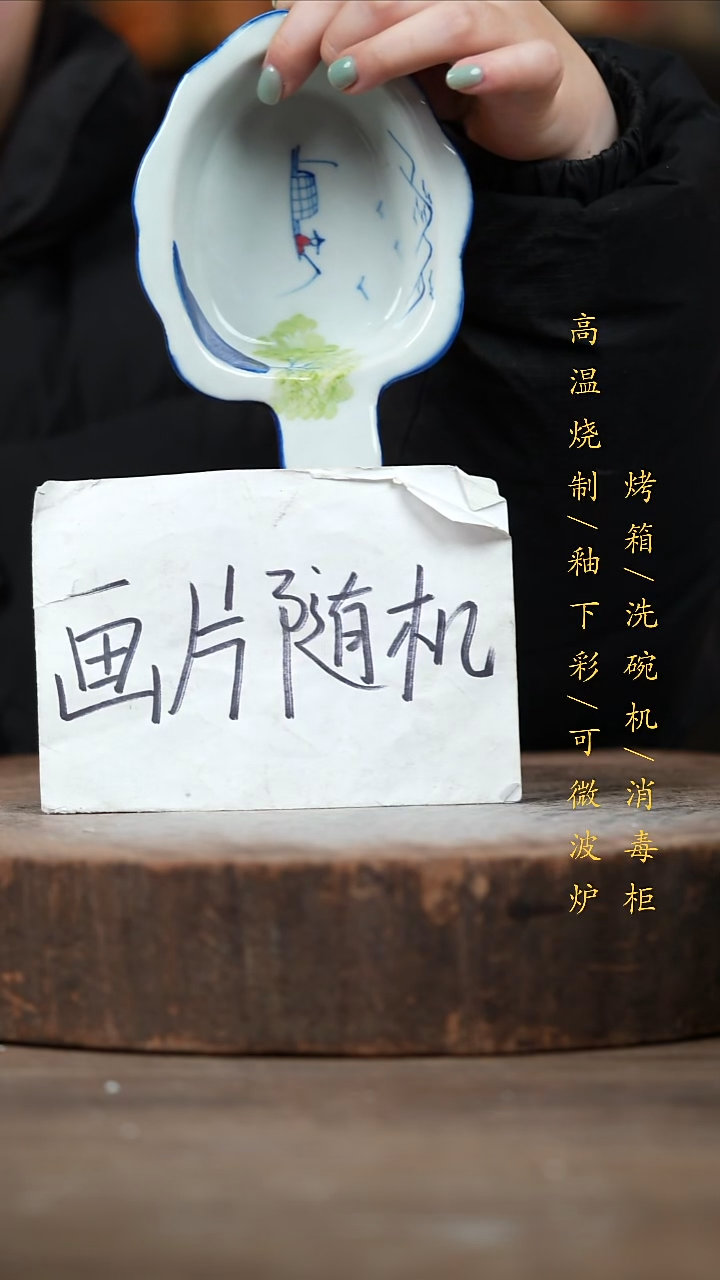 画片随机
高温烧制/釉下彩/可微波炉
烤箱/洗碗机/消毒柜